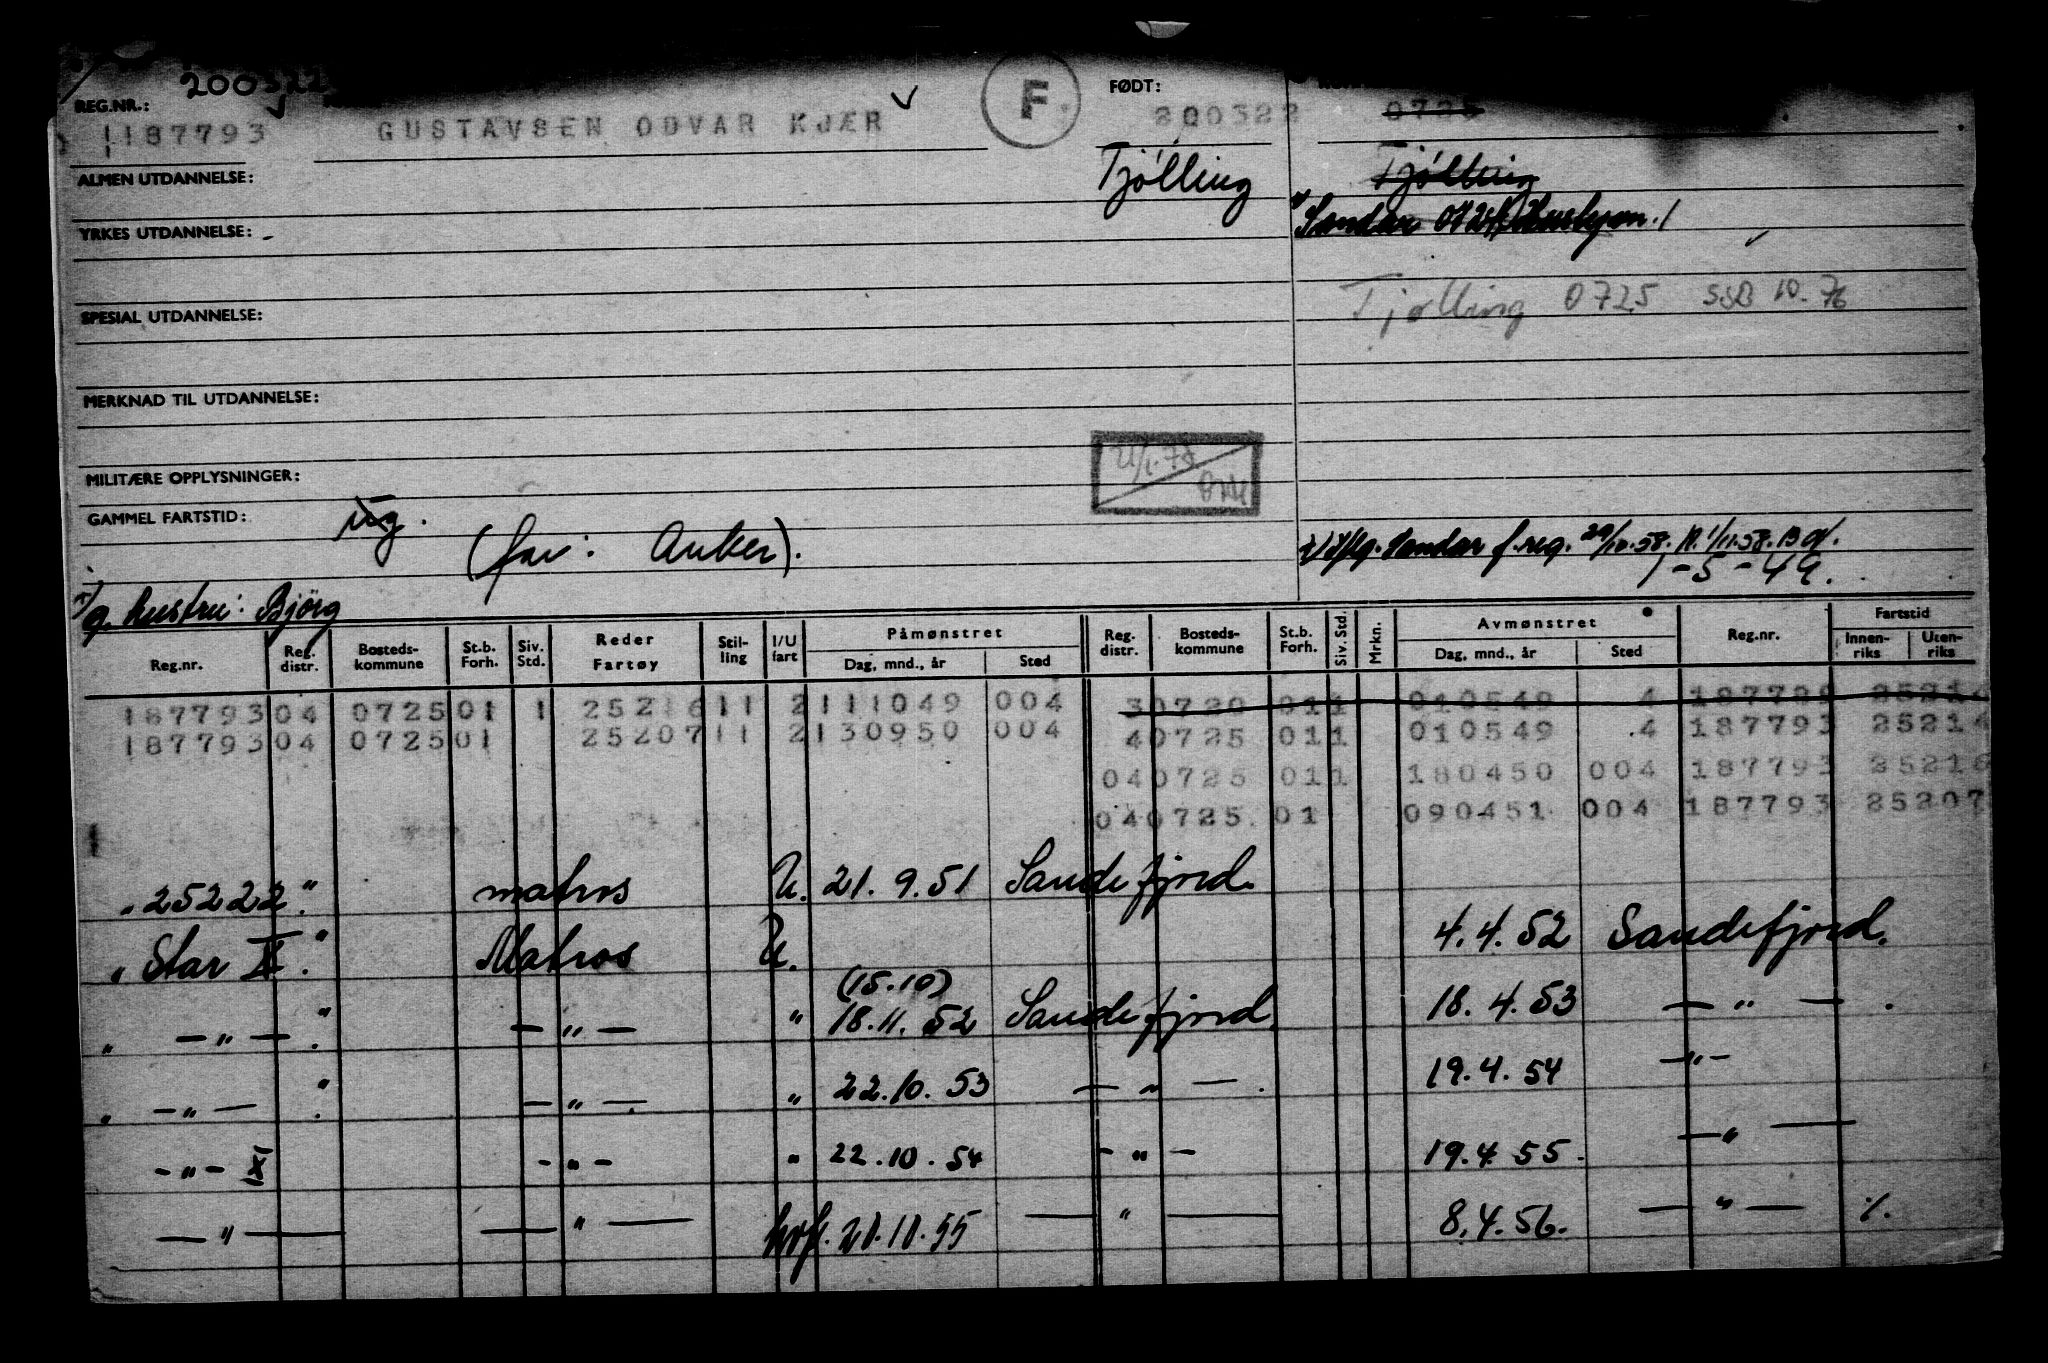 REG.NR.: 200322 FØDT:
1187793 GUSTAVSEN ODVAR KJÆR F 200322 0725
ALMEN UTDANNELSE: Tjølling Tjølling
YRKES UTDANNELSE: Sandar
Tjølling 0725 10.76
SPESIAL UTDANNELSE:
MERKNAD TIL UTDANNELSE:
MILITÆRE OPPLYSNINGER:
GAMMEL FARTSTID: ug.
(far: Anker).
Sandar f.reg. 1/11.58.
1-5-49.
g. hustru: Bjørg
Reg.nr. Reg. distr. Bosteds-kommune St.b. Forh. Siv. Std. Reder Fartøy Stil-ling I/U fart Påmønstret Dag, mnd., år Sted Reg. distr. Bosteds-kommune St.b. Forh. Siv. Std. Mrkn. Avmønstret Dag, mnd., år Sted Reg.nr. Fartstid Innen-riks Uten-riks
187793 04 0725 01 1 25216 11 2 111049 004 30720 011 010549 4 187789 25214
187793 04 0725 01 25207 11 2 130950 004 40725 011 010549 4 187793 25214
040725 011 180450 004 187793 25216
040725 01 090451 004 187793 25207
" 25222." matros U. 21.9.51 Sandefjord.
" Star X." Matros U. 4.4.52 Sandefjord.
" —"— " —"— " (15.10) 18.11.52 Sandefjord 18.4.53 —"— .
" —"— " —"— " 22.10.53 —"— . 19.4.54 —"—
—"— IXI —"— " 22.10.54 —"— 19.4.55. —"—
—"— —"— hvf. 21.10.55 —"— 8.4.56. —"— %.